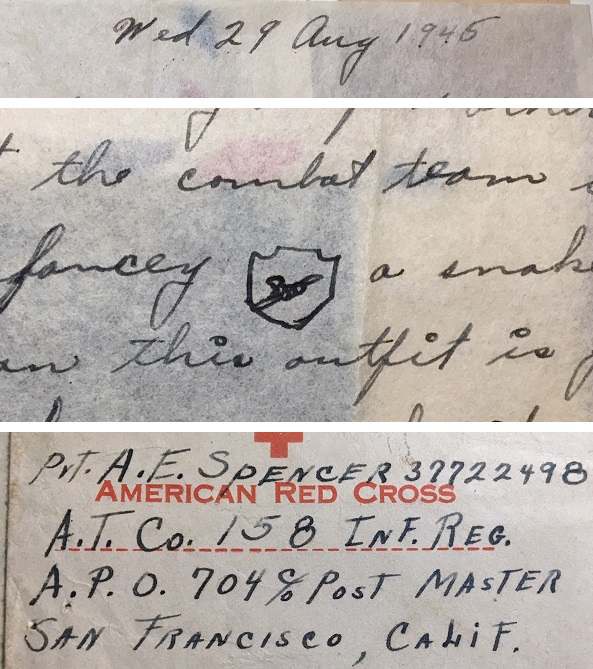 Wed 29 Aug 1945
the combat team
fancey a snake
this outfit is
Pvt. A.E. SPENCER 37722498
AMERICAN RED CROSS
A.T. Co. 158 INF. REG.
A.P.O. 704 c/o POST MASTER
SAN FRANCISCO, CALIF.